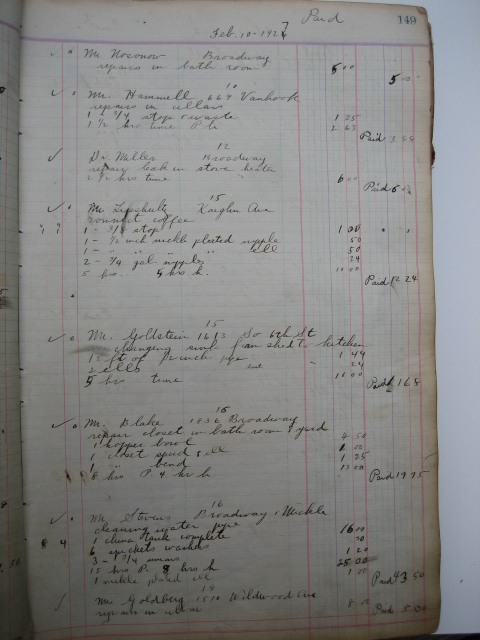 Paid 149
Feb. 10 - 1927
Mr. Nosonow Broadway
repairs in bath room 5 00
5 00
10
Mr. Hammell 669 Vanhook
repairs in cellar
1 - 3/4 stop & waste 1 25
1 1/2 hrs time P h 2 63
Paid 3 88
12
Dr. Miller Broadway
repair leak in stove heater
2 1/2 hrs time 6 00
Paid 6 00
15
Mr. Lipshultz Kaighn Ave
connect coffee
1 - 3/8 stop 1 00
1 - 1/2 inch nickle plated nipple 50
1 - " " " ell 50
2 - 3/4 gal. nipples 24
5 hrs. 5 hrs h. 10 00
Paid 12 24
15
Mr. Goldstein 1613 So 6th St
changing sink from shed to kitchen
12 ft of 1/2 inch pipe 1 44
2 ells 24
5 hrs time
Paid
16
Mr. Blake 1836 Broadway
repair closet in bath room & yard
1 hopper bowl 4 50
1 closet spud & ell 1 00
1 " bend 1 25
8 hrs P. 4 hrs h 13 00
Paid 19 75
16
Mr. Stevens Broadway & Mickle
cleaning water pipe
1 china tank complete 16 00
6 washers 30
3 - 3/4 1 20
15 hrs P. 8 hrs h 25 00
1 nickle plated ell 1 00
Paid 43 50
19
Mr. Goldberg 1510 Wildwood Ave
repairs in
Paid 5 00